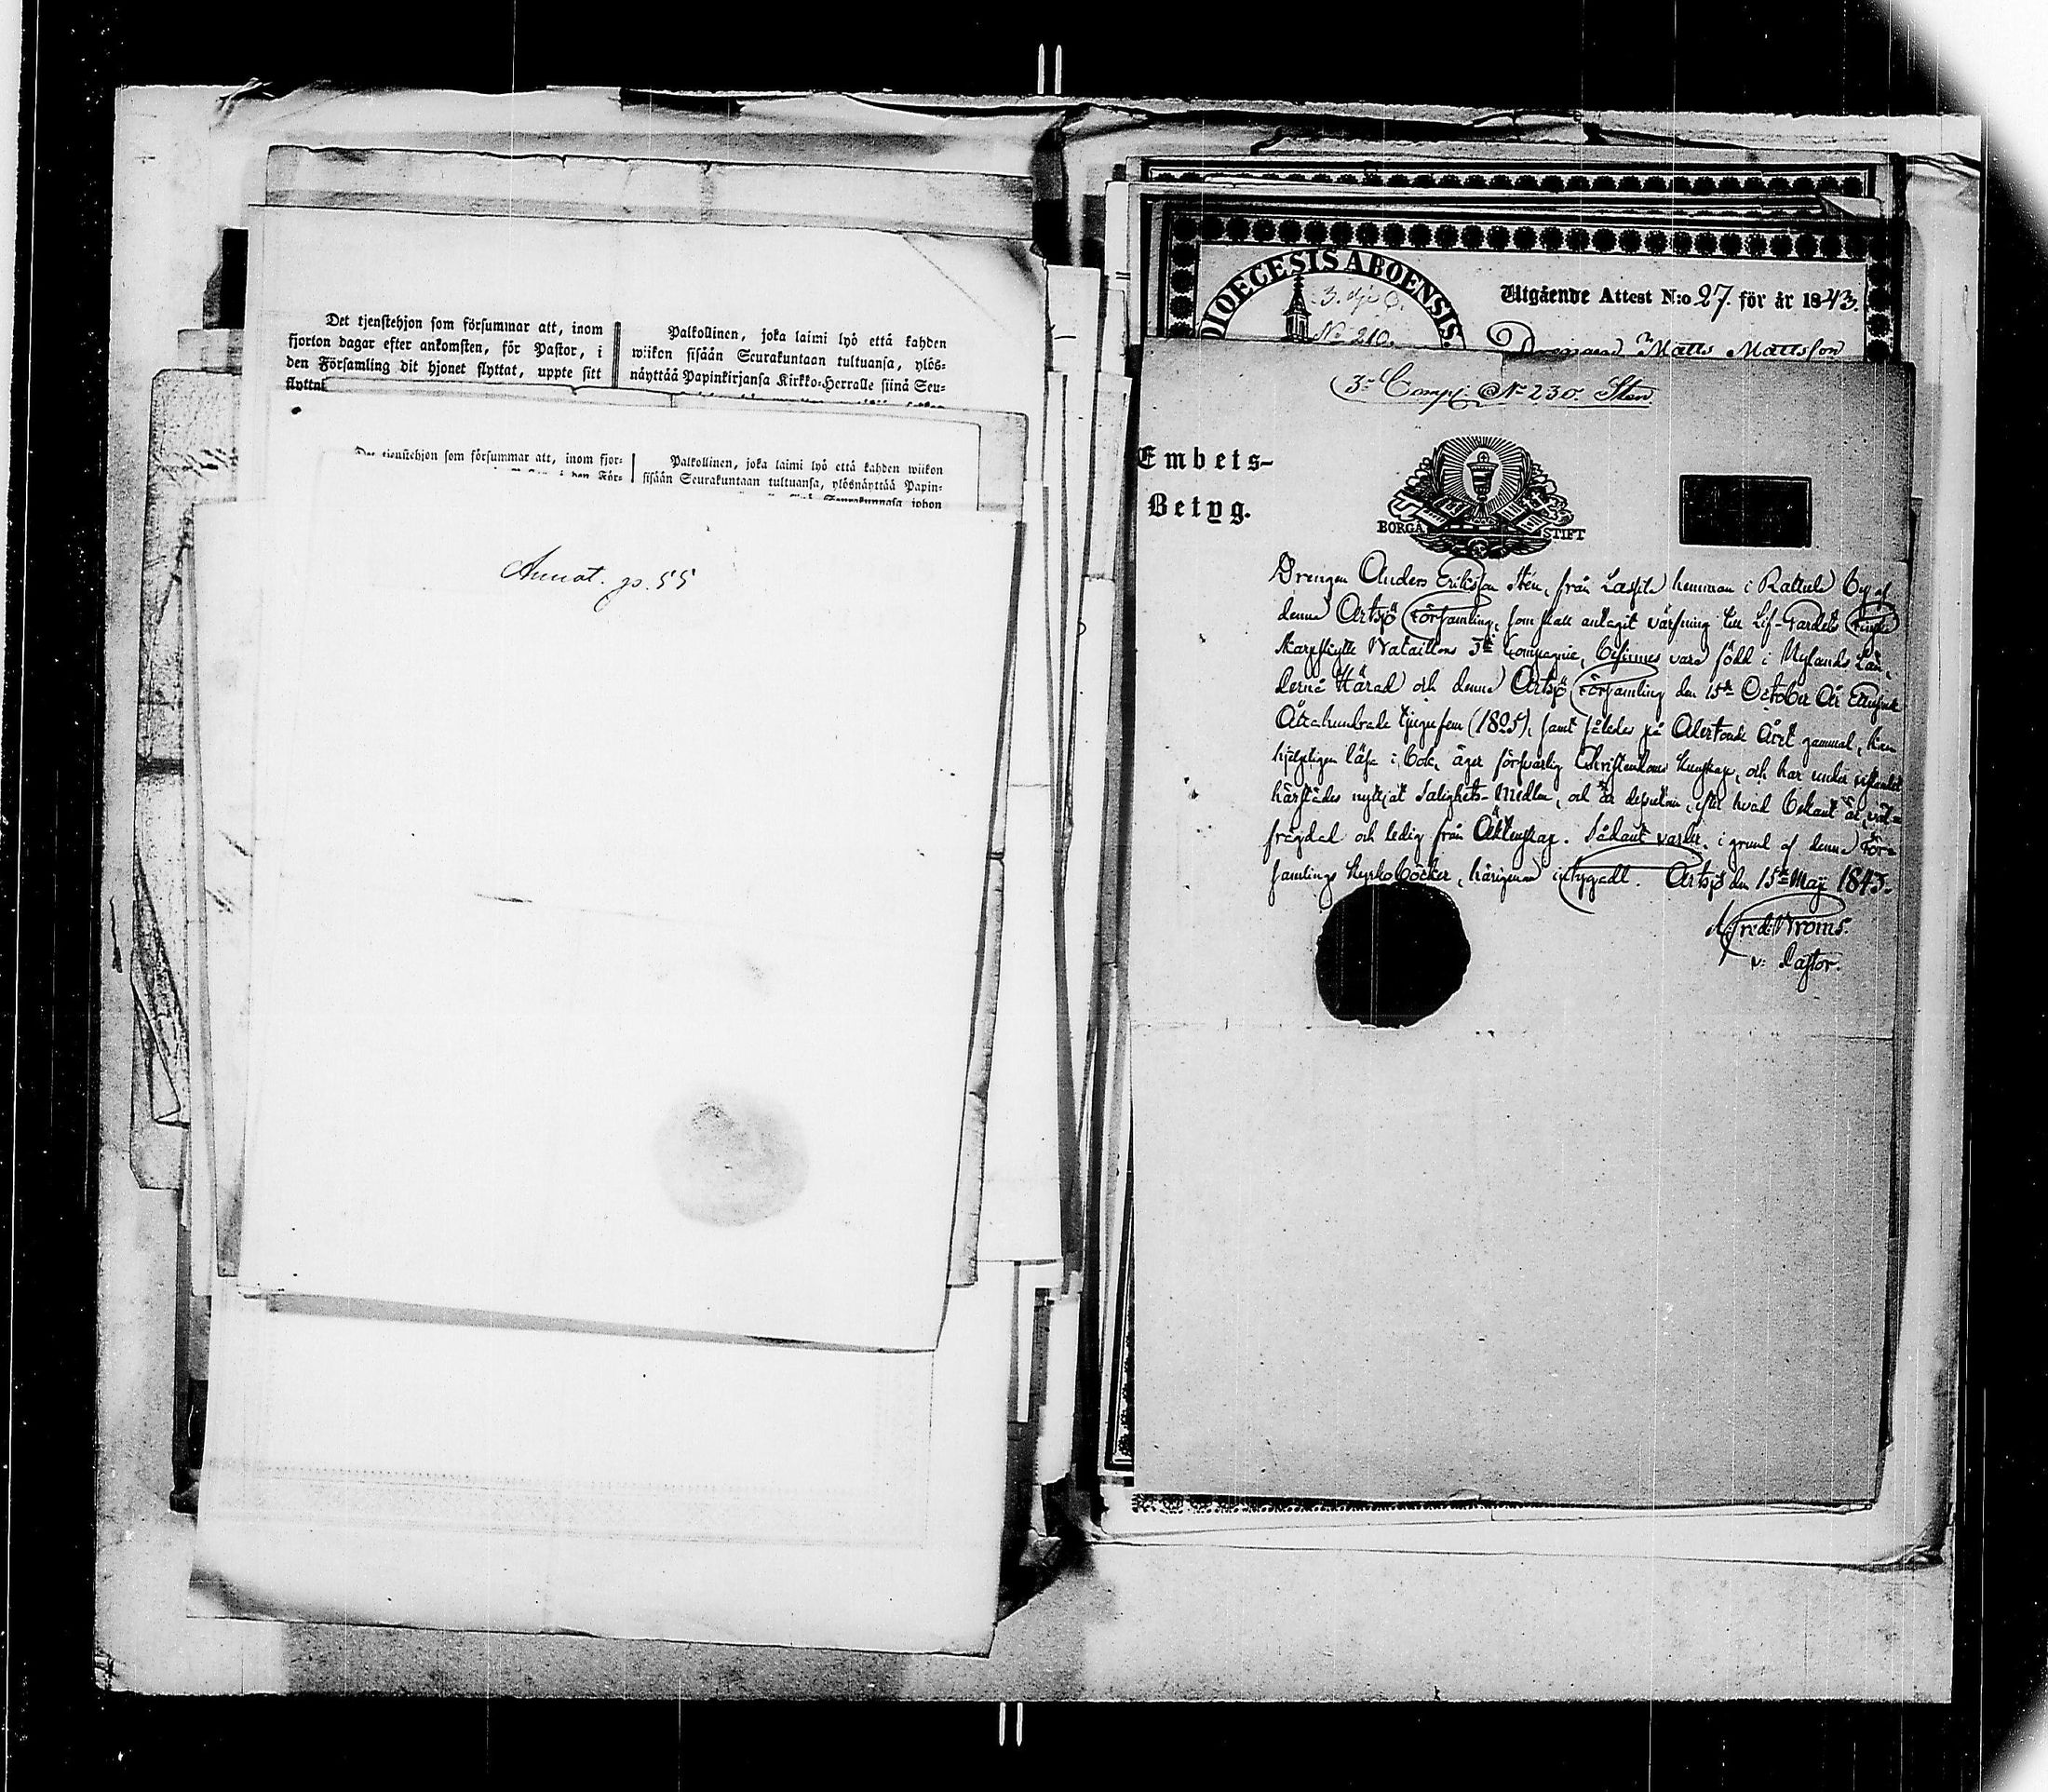 Det tjenstehjon som försummar att, inom
fjorton dagar efter ankomsten, för Pastor, i
den Församling dit hjonet flyttat, uppte sitt
flyttni
Palkollinen, joka laimi lyö että kahden
wiikon sisään Seurakuntaan tultuansa, ylös-
näyttää Papinkirjansa Kirkko-Herralle siinä Seu-
Det tjenstehjon som försummar att, inom fjor-
i den För-
Palkollinen, joka laimi lyö että kahden wiikon
sisään Seurakuntaan tultuansa, ylösnäyttää Papin-
Seurakunnasa johon
Annot. p. 55
DIOECESIS ABOENSIS
No 210.
Utgående Attest N:o 27. för år 1843.
Matts Mattsson
3e Comp. No 230. Sten
Embets-
Betyg.
BORGÅ STIFT
Drengen Anders Eriksson Stén, från Lassila hemman i Rattula By af
denna Artsjö Församling, som skall antagit värfning till Lif-Gardets Finska
Skarpskytte Bataillons 3e Compagnie, befinnes vara född i Nylands Län,
Härad och denna Artsjö Församling den 15de October År Ettusende
Åttahundrade tjugufem (1825), samt således på Adertonde Året gammal, kan
hjelpligen läsa i bok, äger försvarlig Christendoms kunskap, och har under vistandet
härstädes nyttjat Salighets-Medlen, och är dessutom, efter hvad bekant är, väl-
frägdad och ledig från Äktenskap. Sådant varder i grund af denna För-
samlings Kyrkoböcker, härigenom intygadt. Artsjö den 15de Maji 1843.
v: Pastor.